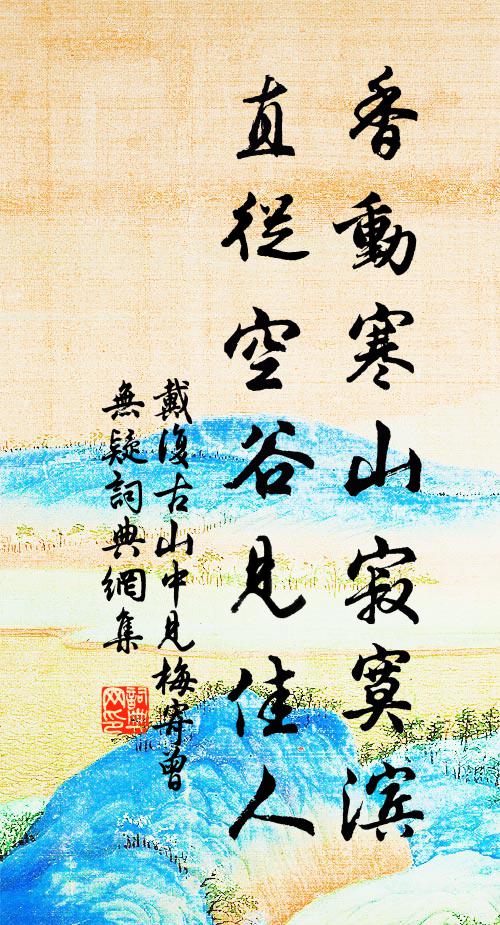 香動寒山寂寞滨
直從空谷見佳人
戴復古山中見梅寄曾
無疑詞典網集